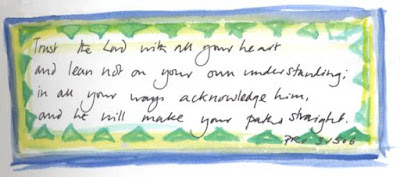 Trust the Lord with all your heart
and lean not on your own understanding;
in all your ways acknowledge him,
and he will make your paths straight.